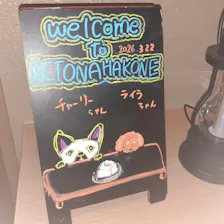 welcome
to 2026 3.22
PETONAHAKONE
チャーリーちゃん ライラちゃん